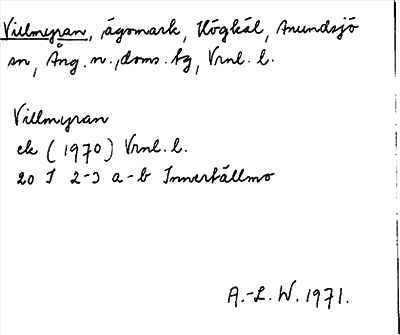 Villmyran, ägomark, Högkäl, Anundsjö
sn, Ång. n., doms. tg, Vrnl. l.
Villmyran
ek (1970) Vrnl. l.
20 I 2-3 a-b Innertällmo
A.-L. W. 1971.